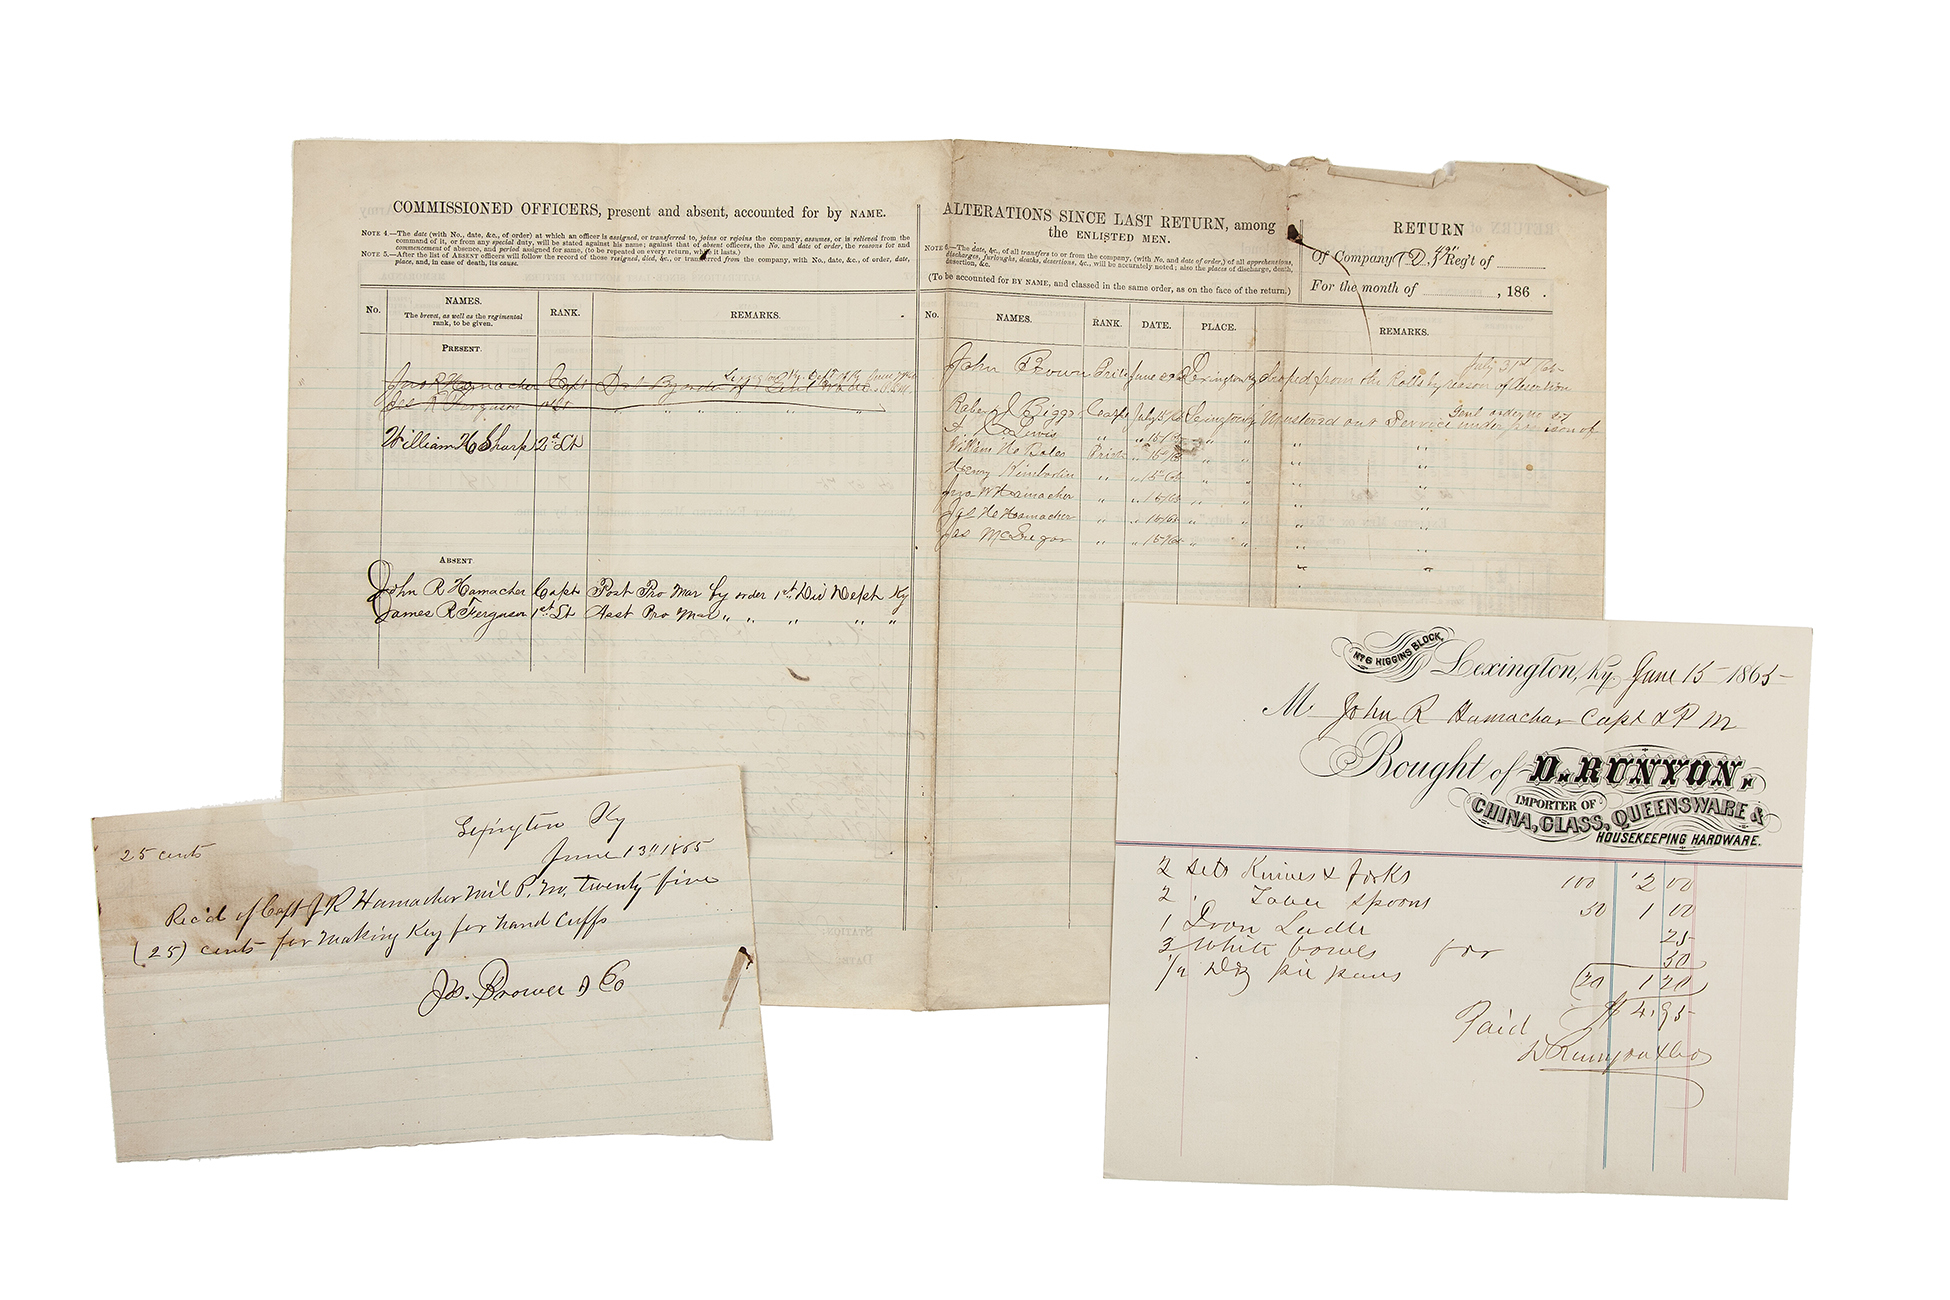 COMMISSIONED OFFICERS, present and absent, accounted for by NAME.
NOTE 4.—The date (with No., date, &c., of order) at which an officer is assigned, or transferred to, joins or rejoins the company, assumes, or is relieved from the
command of it, or from any special duty, will be stated against his name; against that of absent officers, the No. and date of order, the reasons for and
commencement of absence, and period assigned for same, (to be repeated on every return, while it lasts.)
NOTE 5.—After the list of ABSENT officers will follow the record of those resigned, died, &c., or transferred from the company, with No., date, &c., of order, date,
place, and, in case of death, its cause.
No.
NAMES.
The brevet, as well as the regimental
rank, to be given.
RANK.
REMARKS.
PRESENT.
Jno R Hamacher Capt
Jas R Ferguson 1st Lt
William H Sharp 2d Lt
ABSENT
John R Hamacher Capt Post Pro Mar by order 1st Div Dept Ky
James R Ferguson 1st Lt Asst Pro Mar " " " " "
ALTERATIONS SINCE LAST RETURN, among
the ENLISTED MEN.
NOTE 6.—The date, &c., of all transfers to or from the company, (with No. and date of order,) of all apprehensions,
discharges, furloughs, deaths, desertions, &c., will be accurately noted; also the places of discharge, death,
desertion, &c.
(To be accounted for BY NAME, and classed in the same order, as on the face of the return.)
RETURN
Of Company D, Reg't of
For the month of , 186 .
No.
NAMES.
RANK.
DATE.
PLACE.
REMARKS.
July 31st /65
John Brown Priv June Lexington Ky Droped from the Rolls by reason of desertion
Genl order no
Robert J Biggs Corpl July 15/65 Lexington Ky Mustered out Service under provision of
Lewis " " 15/65 " " " "
William H Bales Priv " 15/65 " " " "
Henry " " 15/65 " " " "
Jno W Hamacher " " 15/65 " " " "
Jas H Hamacher " " 15/65 " " " "
Jas McGregor " " 15/65 " " " "
Lexington Ky
June 13" 1865
25 cents
Rec'd of Capt J R Hamacher Mil P. M, twenty five
(25) cents for making Key for hand Cuffs
Jas. Brower & Co
No 6 HIGGINS BLOCK,
Lexington, Ky. June 15 1865
M John R Hamachar Capt & P M
Bought of D. RUNYON,
IMPORTER OF
CHINA, GLASS, QUEENSWARE &
HOUSEKEEPING HARDWARE.
2 sets Knives & Forks 100 2 00
2 Table spoons 50 1 00
1 Iron Ladle 25
3 White bowls for 50
1/2 Doz pie pans 20 1 20
Paid $ 4.95
D Runyon & Co